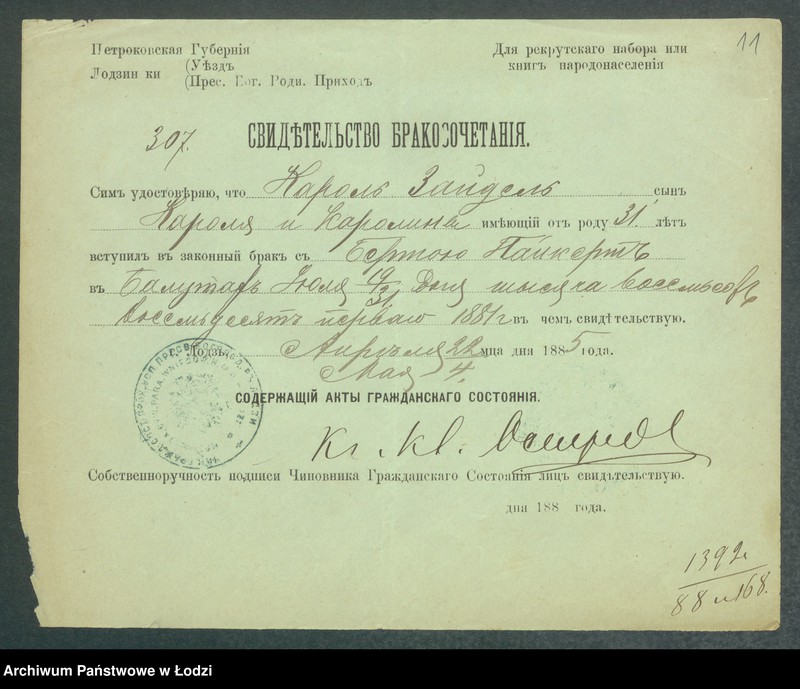 11
Петроковская Губернія
Для рекрутскаго набора или
Лодзин ки
(Уѣздъ
книгъ народонаселенія
(Прес. Бог. Роди. Приходъ
307.
СВИДѢТЕЛЬСТВО БРАКОСОЧЕТАНІЯ.
Симъ удостовѣряю, что Кароль Зайдель сынъ
Кароля и Каролины имѣющій отъ роду 31 лѣтъ
вступилъ въ законный бракъ съ Бертою Панкертъ
въ Балутахъ Іюля 19/31 Дня тысяча восемьсотъ
восемьдесятъ перваго 1881 г въ чемъ свидѣтельствую.
Лодзь Апрѣля 22 мца дня 1885 года.
Мая 4.
СОДЕРЖАЩІЙ АКТЫ ГРАЖДАНСКАГО СОСТОЯНІЯ.
Собственноручность подписи Чиновника Гражданскаго Состоянія лицъ свидѣтельствую.
дня 188 года.
1392
88 168.
Archiwum Państwowe w Łodzi